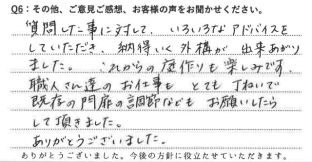 Q6：その他、ご意見ご感想、お客様の声をお聞かせください。
質問した事に対して、いろいろなアドバイスを
していただき、納得いく外構が出来あがり
ました。これからの庭作りも楽しみです。
職人さん達のお仕事もとても丁ねいで
既存の門扉の調節などもお願いしたら
して頂きました。
ありがとうございました。
ありがとうございました。今後の方針に役立たせていただきます。